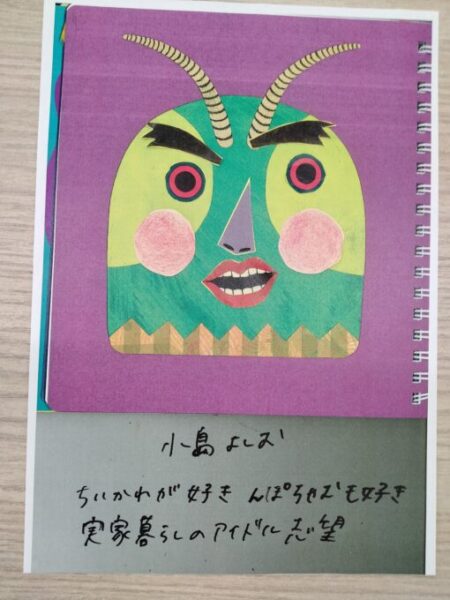 小島よしお
ちいかわが好き んぽちゃむも好き
実家暮らしのアイドル志望